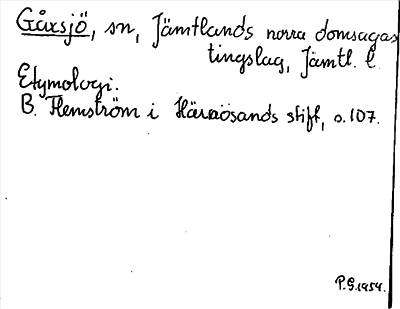 Gåxsjö, sn, Jämtlands norra domsagas
tingslag, Jämtl. l.
Etymologi.
B. Flemström i Härnösands stift, s. 107.
P.G. 1954.